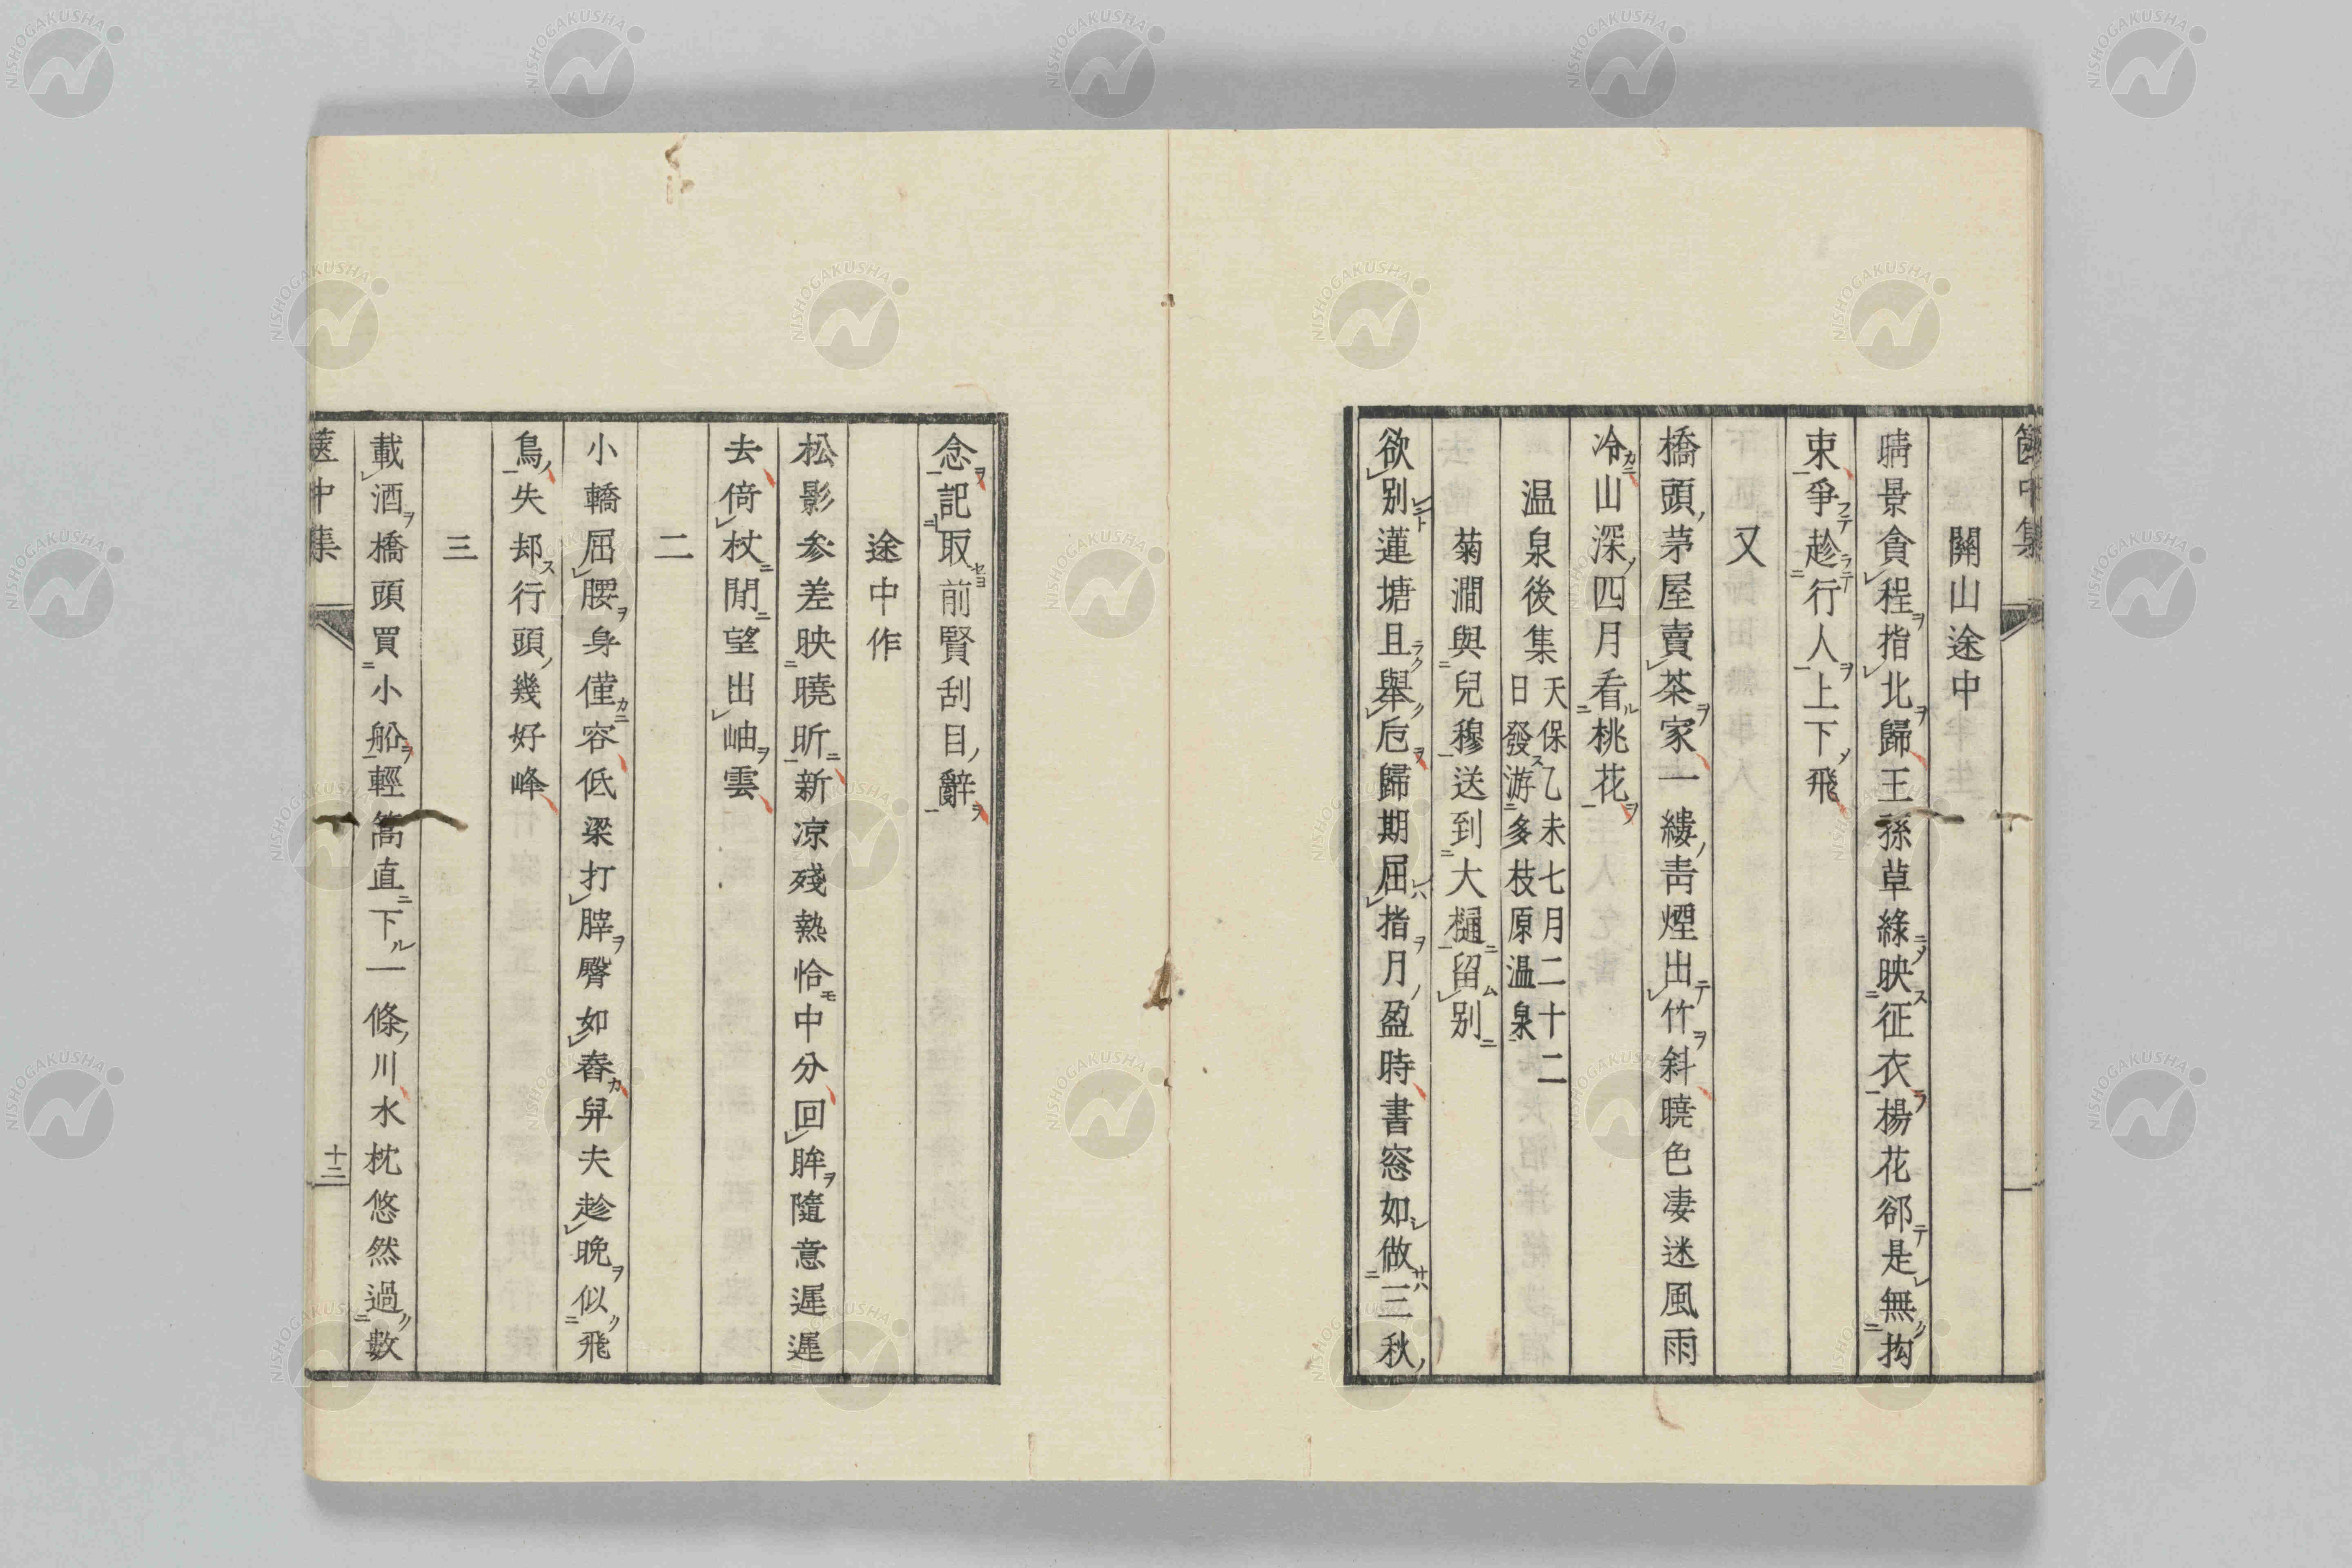 關山途中
晴景貪程指北歸王孫草綠映征衣楊花郤是無拘
束爭趁行人上下飛
又
橋頭茅屋賣茶家一縷靑煙出竹斜曉色凄迷風雨
冷山深四月看桃花
温泉後集天保乙未七月二十二
日發游多枝原温泉
菊澗與兒穆送到大樋留別
欲別蓮塘且擧巵歸期屈指月盈時書窓如做三秋
念記取前賢刮目辭
途中作
松影參差映曉昕新凉殘熱恰中分回眸隨意遲遲
去倚杖閒望出岫雲
二
小轎屈腰身僅容低梁打脺臀如舂舁夫趁晚似飛
鳥失却行頭幾好峰
三
載酒橋頭買小船輕篙直下一條川水枕悠然過數
中集
十二
NISHOGAKUSHA